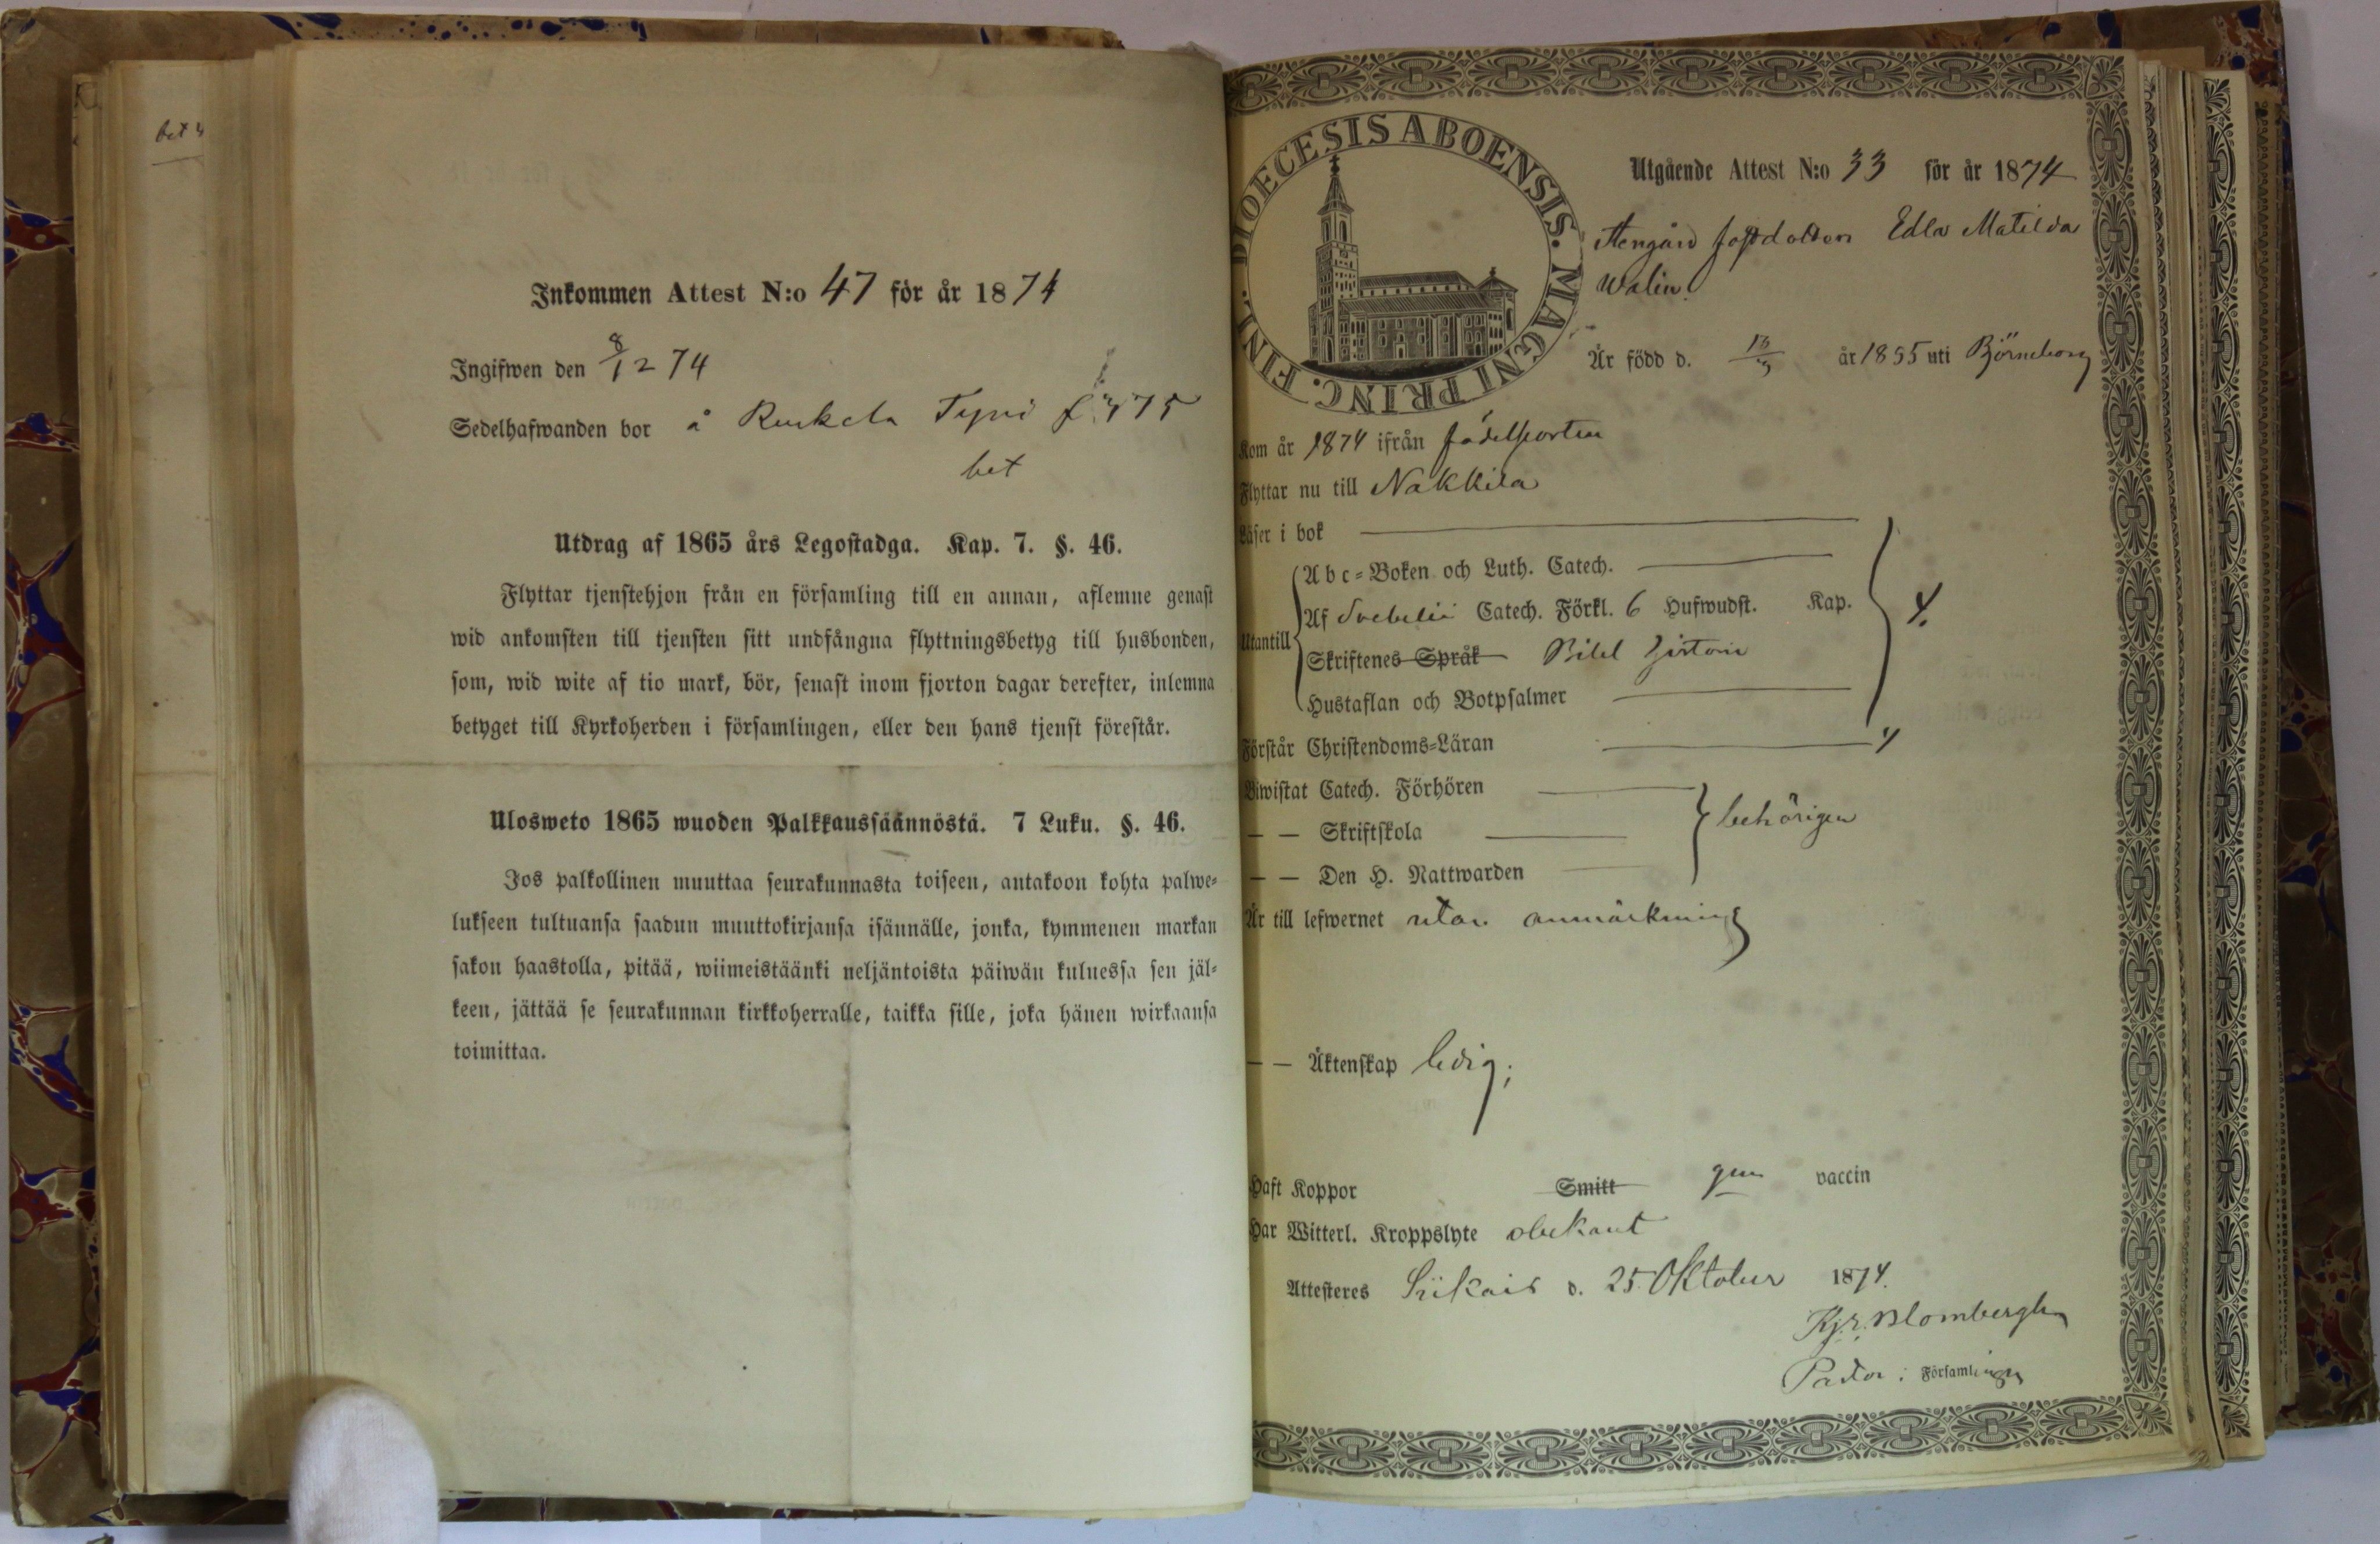 bet 4
Inkommen Attest N:o 47 för år 1874
Ingifwen den 8/12 74
Sedelhafwanden bor å Ruskela Tyni f 475
bet
Utdrag af 1865 års Legostadga. Kap. 7. §. 46.
Flyttar tjenstehjon från en församling till en annan, aflemne genast
wid ankomsten till tjensten sitt undfångna flyttningsbetyg till husbonden,
som, wid wite af tio mark, bör, senast inom fjorton dagar derefter, inlemna
betyget till Kyrkoherden i församlingen, eller den hans tjenst förestår.
Ulosweto 1865 wuoden Palkkaussäännöstä. 7 Luku. §. 46.
Jos palkollinen muuttaa seurakunnasta toiseen, antakoon kohta palwe-
lukseen tultuansa saadun muuttokirjansa isännälle, jonka, kymmenen markan
sakon haastolla, pitää, wiimeistäänki neljäntoista päiwän kuluessa sen jäl-
keen, jättää se seurakunnan kirkkoherralle, taikka sille, joka hänen wirkaansa
toimittaa.
DIOECESIS ABOENSIS. MAGNI PRINC. FINL.
Utgående Attest N:o 33 för år 1874
Edla Matilda
Walin.
Är född d. år 1855 uti Björneborg
Kom år 1874 ifrån födelseorten
Flyttar nu till Nakkila
Läser i bok
Utantill
Abc-Boken och Luth. Catech.
Af Svebelii Catech. Förkl. 6 Hufwudst. Kap.
Skriftenes Språk Bibl historie
4.
Hustaflan och Botpsalmer
Förstår Christendoms-Läran 4
Biwistat Catech. Förhören
— — Skriftskola
behörigen
— — Den H. Nattwarden
Är till lefwernet utan anmärkning
— — Äktenskap ledig;
Haft Koppor Smitt gm vaccin
Har Witterl. Kroppslyte obekant
Attesteres Siikais d. 25 Oktober 1874.
Kj. R. Blombergh
Pastor i Församlingen